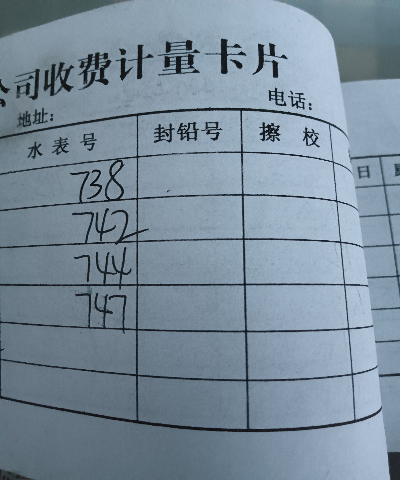 公司收费计量卡片
地址: 电话:
水表号 封铅号 擦校
738
742
744
747
日